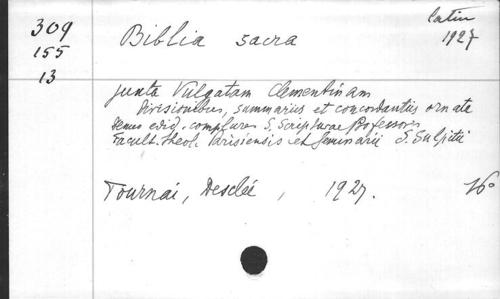 309
155
13
Biblia sacra
latin
1927
juxta Vulgatam Clementinam
Divisionibus, summariis et concordantiis ornata
Denuo edid. complures S. Scripturae Professores
Facult. theol. Parisiensis et Seminarii S. Sulpitii
Tournai, Desclée, 1927.
16°